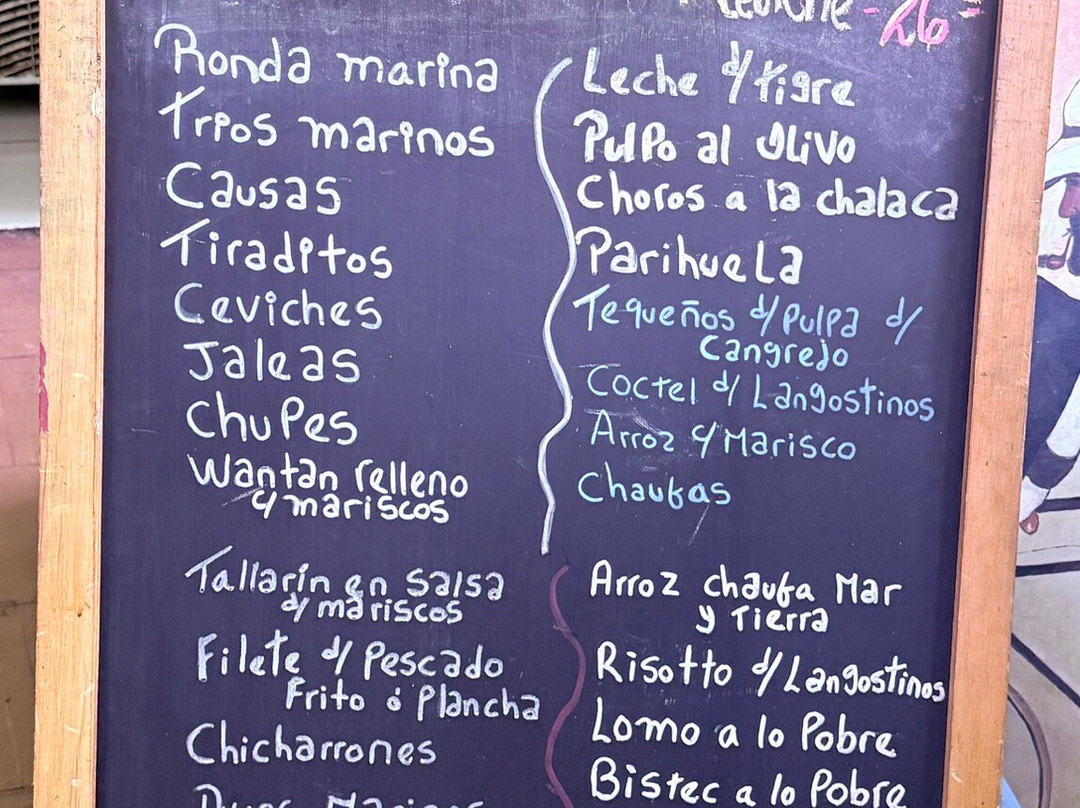 Ceviche - 26 -
Ronda marina
Tríos marinos
Causas
Tiraditos
Ceviches
Jaleas
Chupes
Wantan relleno
c/ mariscos
Tallarín en salsa
d/ mariscos
Filete d/ Pescado
Frito ó Plancha
Chicharrones
Marinos
Leche d/ tigre
Pulpo al Olivo
Choros a la chalaca
Parihuela
Tequeños d/ Pulpa d/
Cangrejo
Coctel d/ Langostinos
Arroz c/ Marisco
Chaufas
Arroz chaufa Mar
y Tierra
Risotto d/ Langostinos
Lomo a lo Pobre
Bistec a lo Pobre